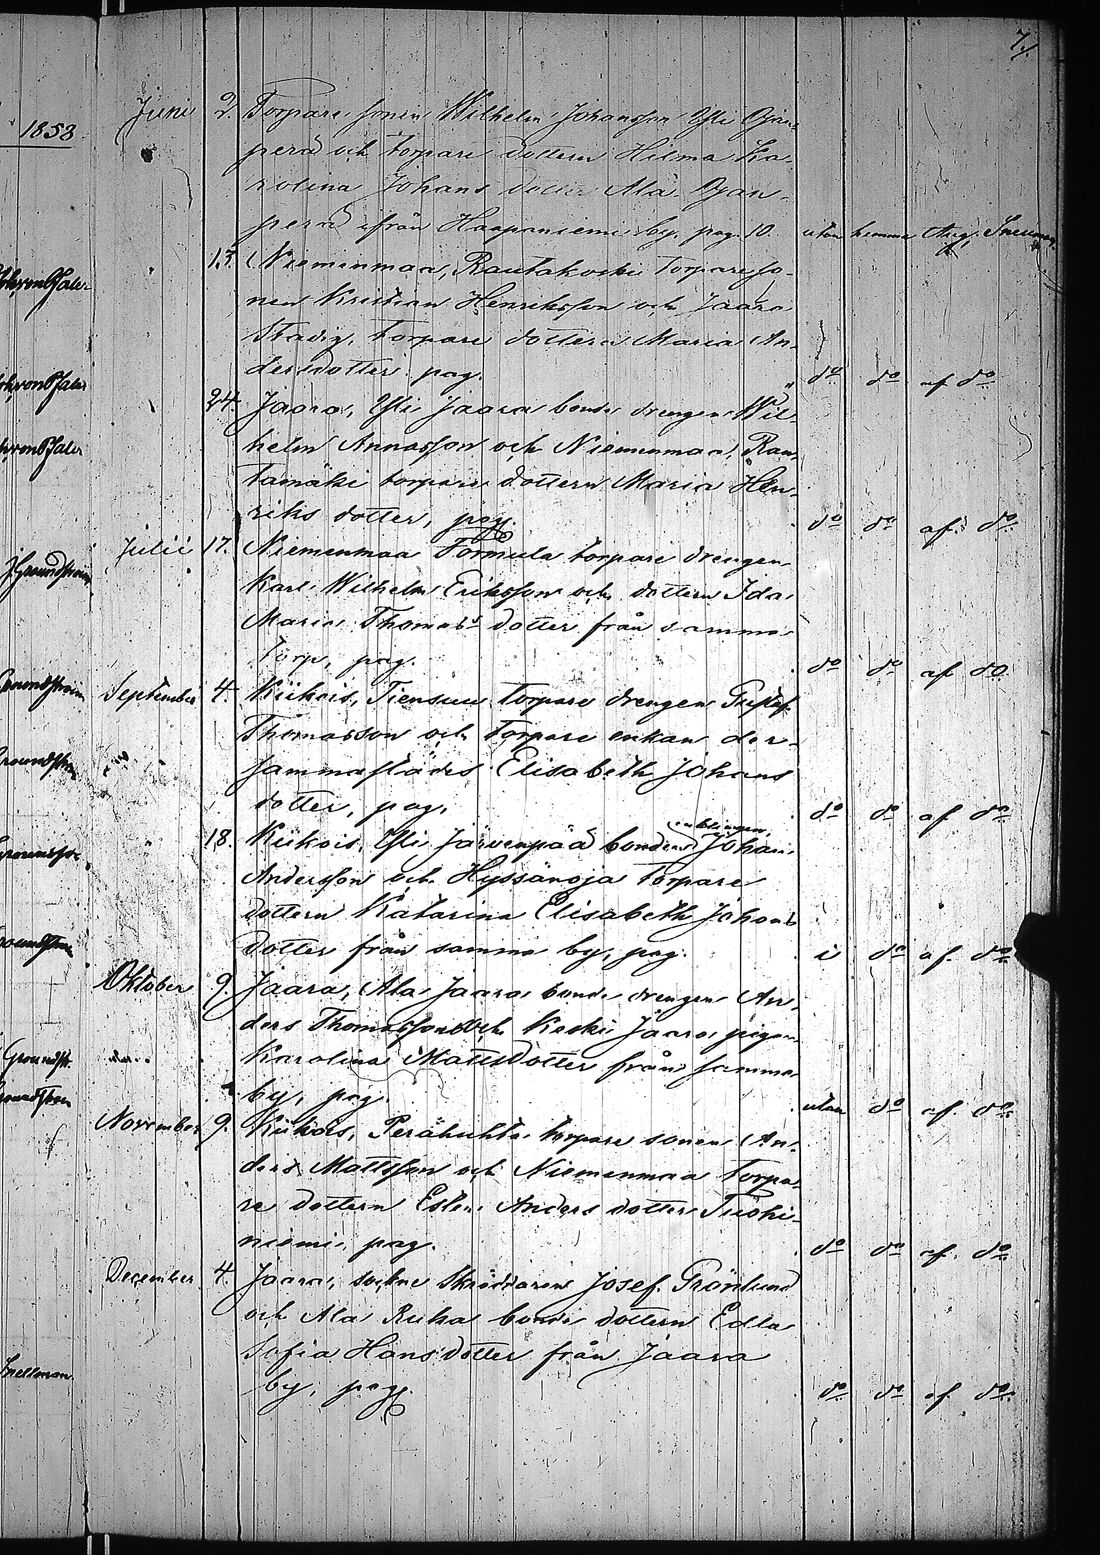 7.
1853
Juni 2. Torpare sonen Wilhelm Johansson Yli Ojan-
perä och torpare dottern Hilma Ka-
rolina Johans dotter Ala Ojan-
perä ifrån Haapaniemi by, pag. 10. utan hemma Aug. Snellman
13. Niemenmaa, Rautakoski torpare so-
nen Kristian Henriksson och Jaara
Stadig, torpare dottern Maria An-
dersdotter pag. do do af do
24. Jaara, Yli Jaara bonde drengen Wil-
helm Annasson och Niemenmaa, Rau-
tamäki torpare dottern Maria Hen-
riks dotter, pag. do do af do
Julii 17. Niemenmaa Tormula torpare drengen
Karl Wilhelm Eriksson och dottern Ida
Maria Thomas dotter från samma
torp, pag. do do af do
September 4. Kiikois, Tiensuu torpare drengen Gustaf
Thomasson och Torpare enkan der-
sammastädes Elisabeth Johans
dotter, pag. do do af do
enklingen
18. Kiikois, Yli Järvenpää bonden Johan
Andersson och Hyssänoja torpare
dottern Katarina Elisabeth Johans
dotter från samma by, pag. i do af do
Oktober 9. Jaara, Ala Jaara bonde drengen An-
ders Thomasson och Keski Jaara pigan
Karolina Mattsdotter från samma
by, pag. utan do af do
November 9. Kiikois, Perähuhta torpare sonen An-
ders Mattsson och Niemenmaa torpa-
re dottern Ester Anders dotter Tuohi-
niemi, pag. do do af do
December 4. Jaara, sockne Skräddaren Josef Grönlund
och Ala Ruha bonde dottern Edla
Sofia Hans dotter från Jaara
by, pag. do do af do
Snellman